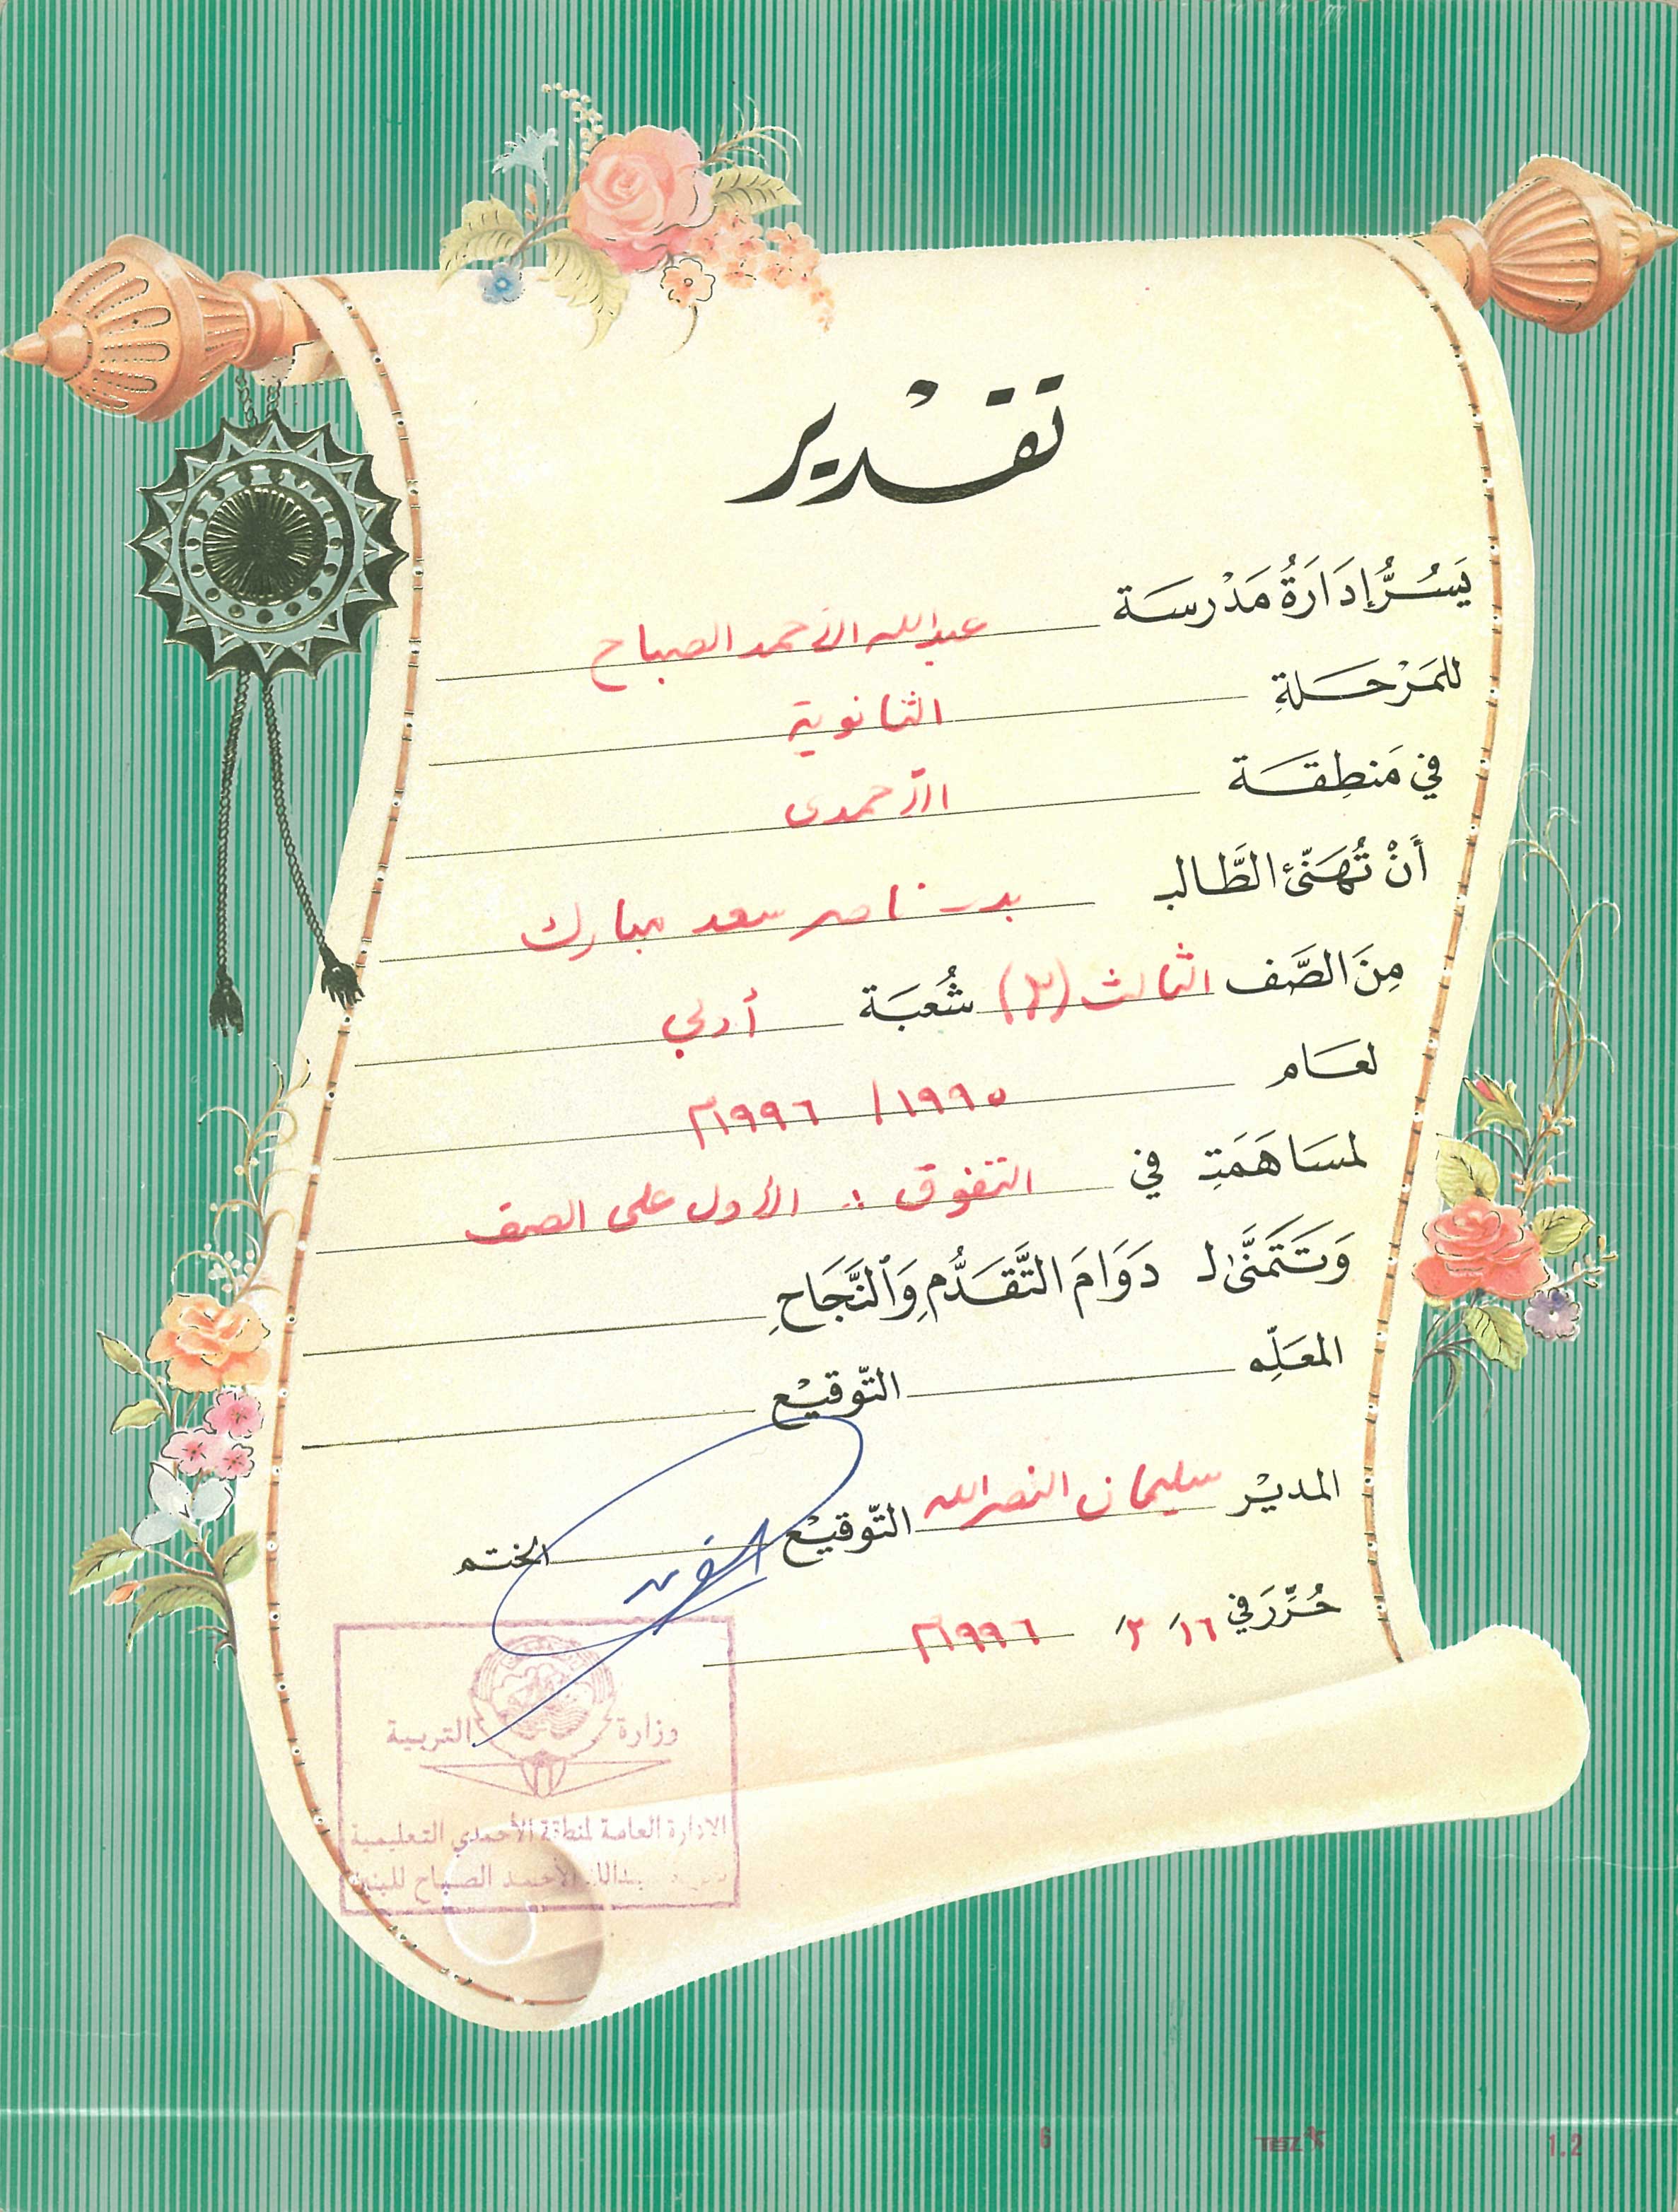 تقدير
يَسُرُّ إدَارَةُ مَدْرسَة عبدالله الأحمد الصباح
للمَرْحَلةِ الثانوية
في مَنطِقَة الأحمدى
أَنْ تُهَنّئَ الطَّالب بدر ناصر سعد مبارك
مِنَ الصَّف الثالث (٣) شُعبَة أدبي
لعَام ١٩٩٥ / ١٩٩٦م
لمسَاهَمَتِ في التفوق : الأول على الصف
وَتتَمَنَّى ل دَوَامَ التَّقَدُّمِ وَالنَّجَاحِ
المعَلِّم التّوقيْع
المديْر سليمان النصرالله التّوقيْع الختم
حُرِّرَ في ١٦ / ٣ / ١٩٩٦م
وزارة التربية
الادارة العامة لمنطقة الأحمدي التعليمية
الأحمد الصباح للبنين
6 1.2